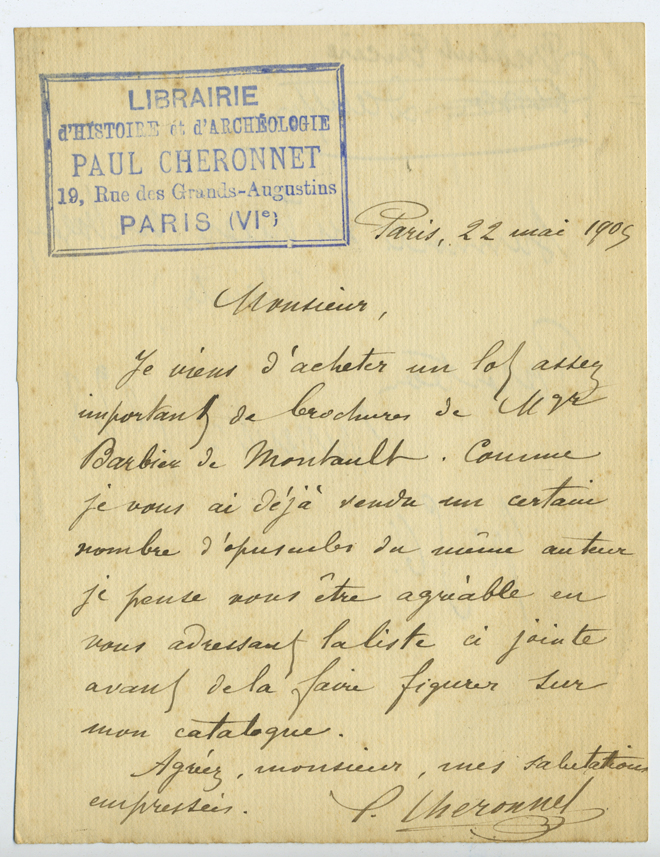 LIBRAIRIE
d'HISTOIRE et d'ARCHÉOLOGIE
PAUL CHERONNET
19, Rue des Grands-Augustins
PARIS (VIe)
Paris, 22 mai 1905
Monsieur,
Je viens d'acheter un lot assez
important de brochures de Mgr
Barbier de Montault. Comme
je vous ai déjà vendu un certain
nombre d'opuscules du même auteur
je pense vous être agréable en
vous adressant la liste ci jointe
avant de la faire figurer sur
mon catalogue.
Agréez, monsieur, mes salutations
empressées.
P. Cheronnet